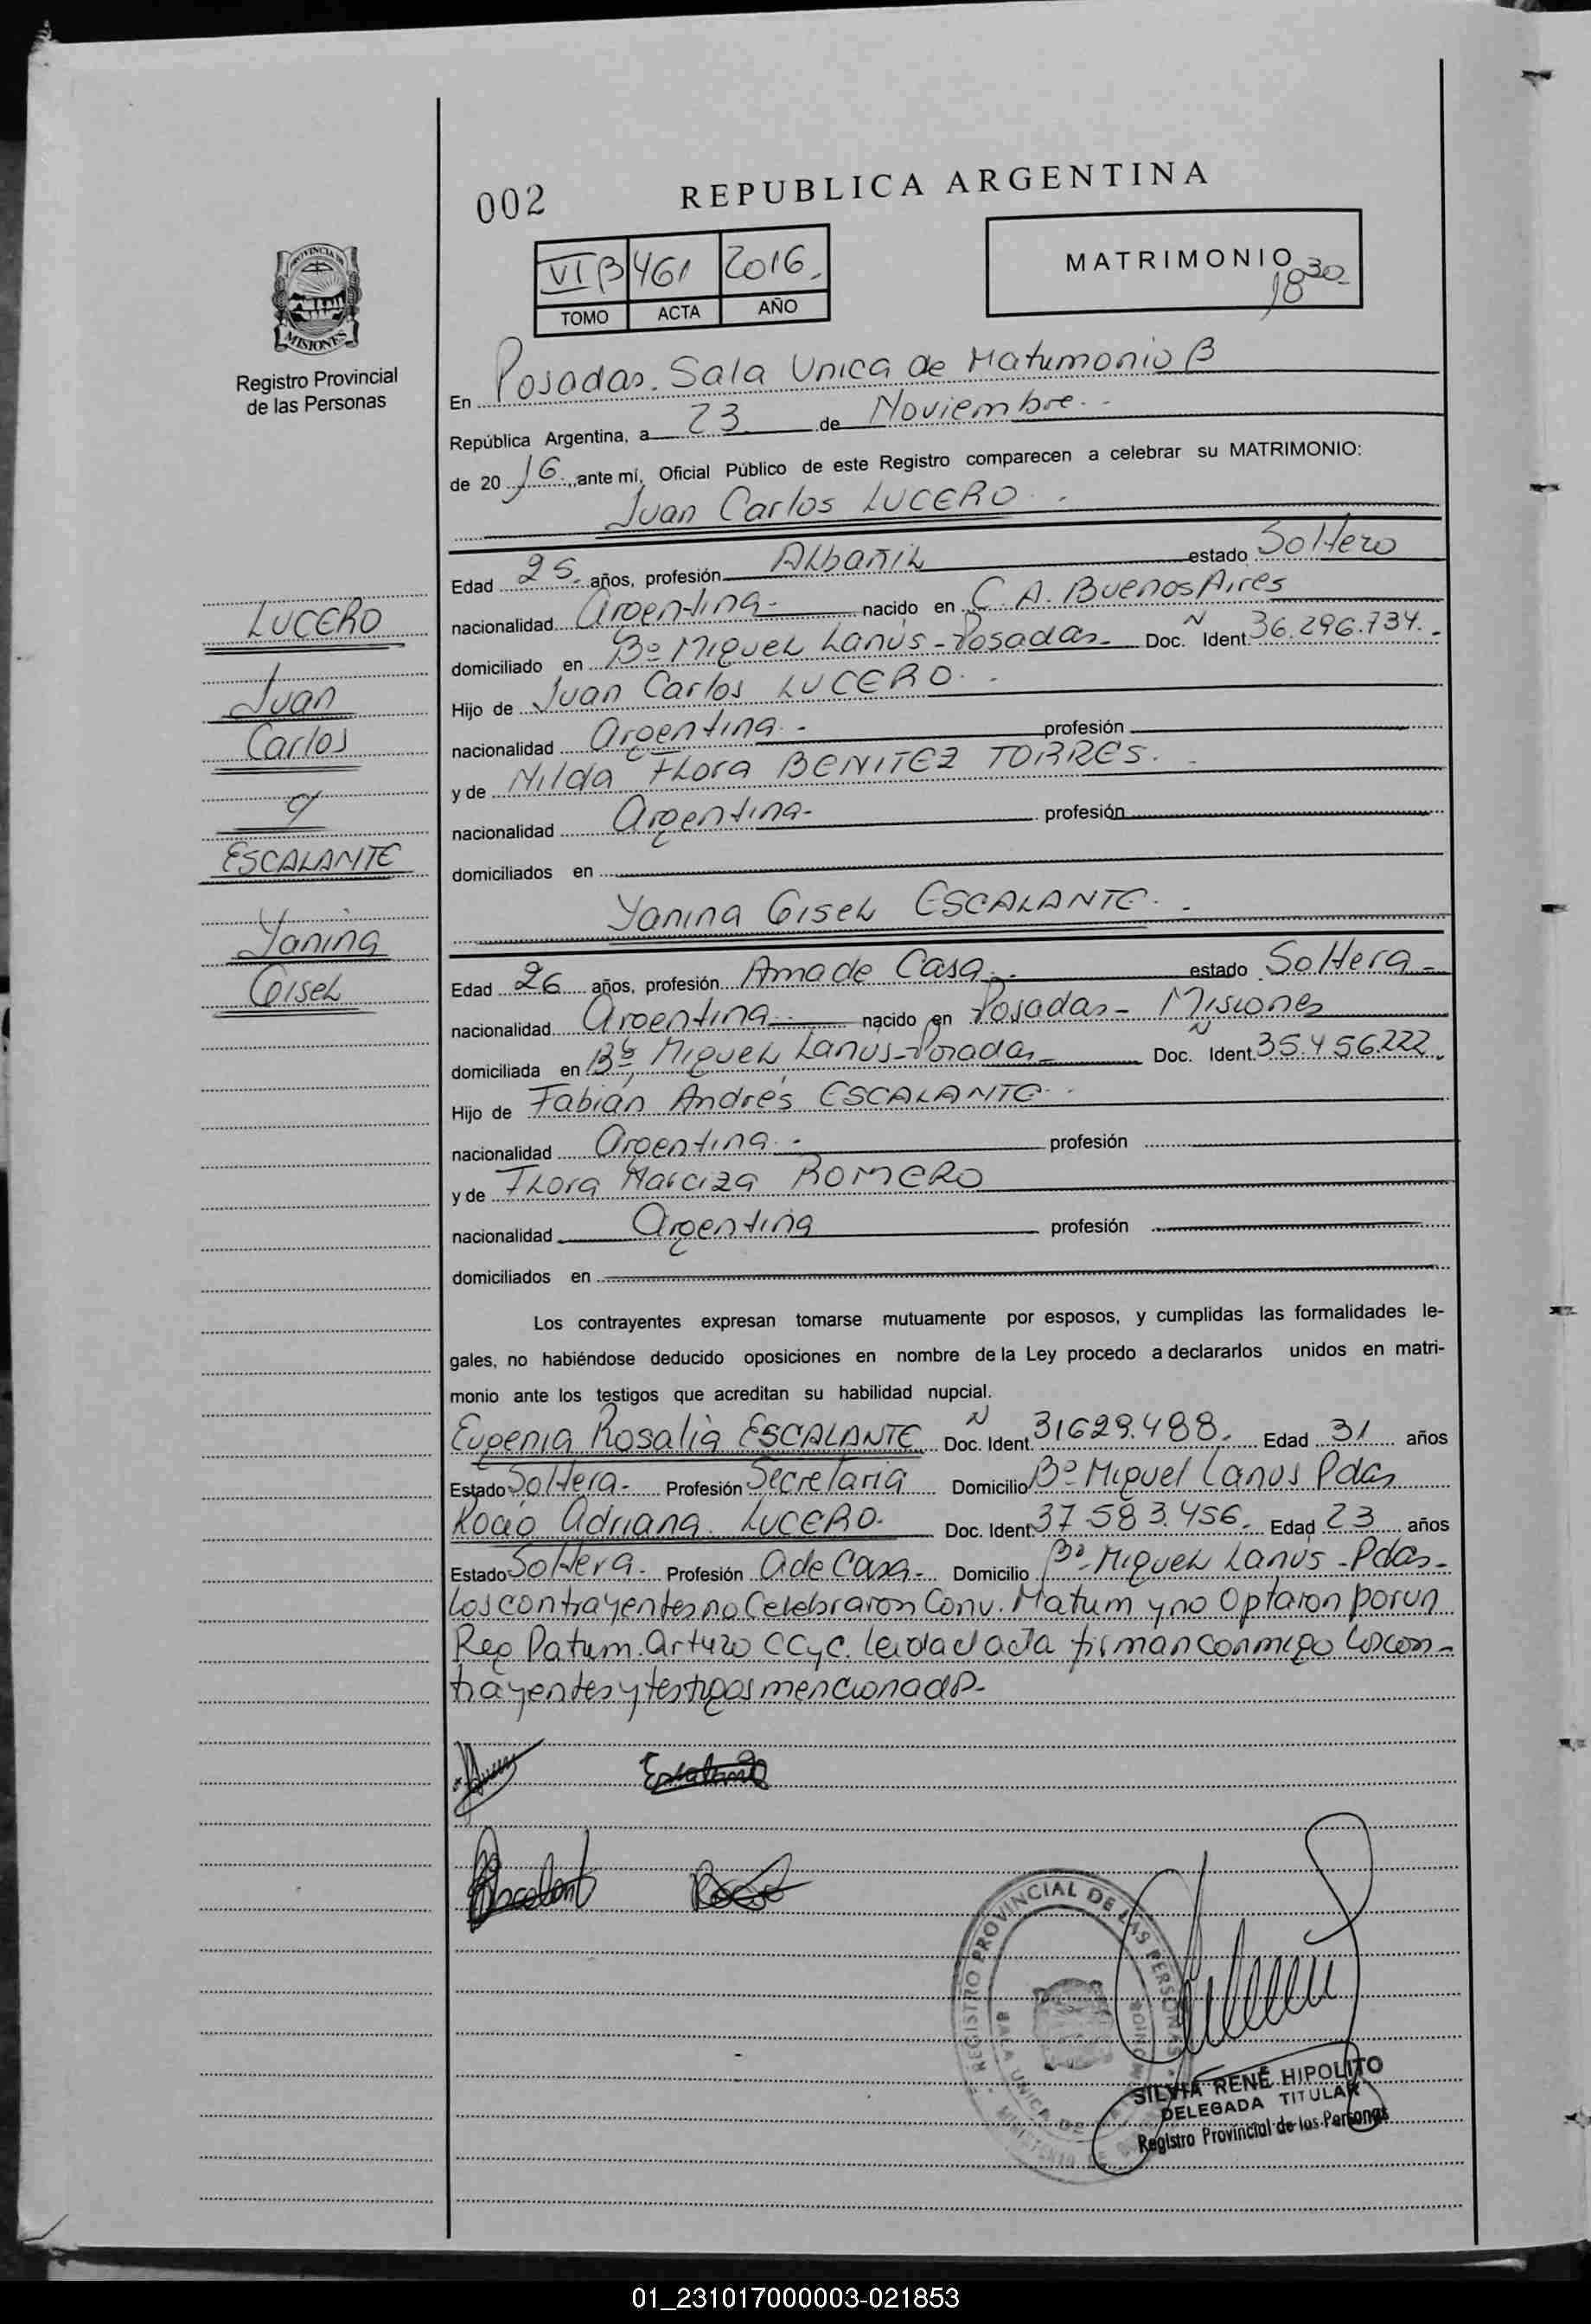 002
REPUBLICA ARGENTINA
VI B 461 2016.
TOMO ACTA AÑO
MATRIMONIO
18 30
PROVINCIA DE
MISIONES
Registro Provincial
de las Personas
En Posadas. Sala Unica de Matrimonio B
República Argentina, a 23 de Noviembre.
de 2016, ante mí, Oficial Público de este Registro comparecen a celebrar su MATRIMONIO:
Juan Carlos LUCERO.
Edad 25. años, profesión Albañil estado Soltero
nacionalidad Argentina nacido en C. A. Buenos Aires
domiciliado en Bº Miguel Lanús - Posadas- Doc. N Ident. 36.296.734.
Hijo de Juan Carlos LUCERO.
nacionalidad Argentina. profesión
y de Nilda Flora BENITEZ TORRES.
nacionalidad Argentina- profesión
domiciliados en
Yanina Gisel ESCALANTE.
Edad 26 años, profesión Ama de Casa. estado Soltera-
nacionalidad Argentina nacido en Posadas- Misiones
domiciliada en Bº Miguel Lanús-Posadas- Doc. N Ident. 35.456.222.
Hijo de Fabián Andrés ESCALANTE.
nacionalidad Argentina. profesión
y de Flora Narciza ROMERO
nacionalidad Argentina profesión
domiciliados en
LUCERO
Juan
Carlos
c/
ESCALANTE
Yanina
Gisel
Los contrayentes expresan tomarse mutuamente por esposos, y cumplidas las formalidades le-
gales, no habiéndose deducido oposiciones en nombre de la Ley procedo a declararlos unidos en matri-
monio ante los testigos que acreditan su habilidad nupcial.
Eugenia Rosalía ESCALANTE Doc. N Ident. 31629.488. Edad 31 años
Estado Soltera. Profesión Secretaria Domicilio Bº Miguel Lanus Pdas
Rocio Adriana LUCERO. Doc. Ident. 37.583.456. Edad 23 años
Estado Soltera. Profesión A de Casa- Domicilio Bº Miguel Lanús - Pdas-
Los contrayentes no Celebraron Conv. Matrim y no Optaron por un
Reg Patrim. CCyC. leida el acta firman conmigo los con-
trayentes y testigos mencionados-
Escalante
Rocio
REGISTRO PROVINCIAL DE LAS PERSONAS
SALA UNICA DE
SILVIA RENÉ HIPOLITO
DELEGADA TITULAR
Registro Provincial de las Personas
01_231017000003-021853